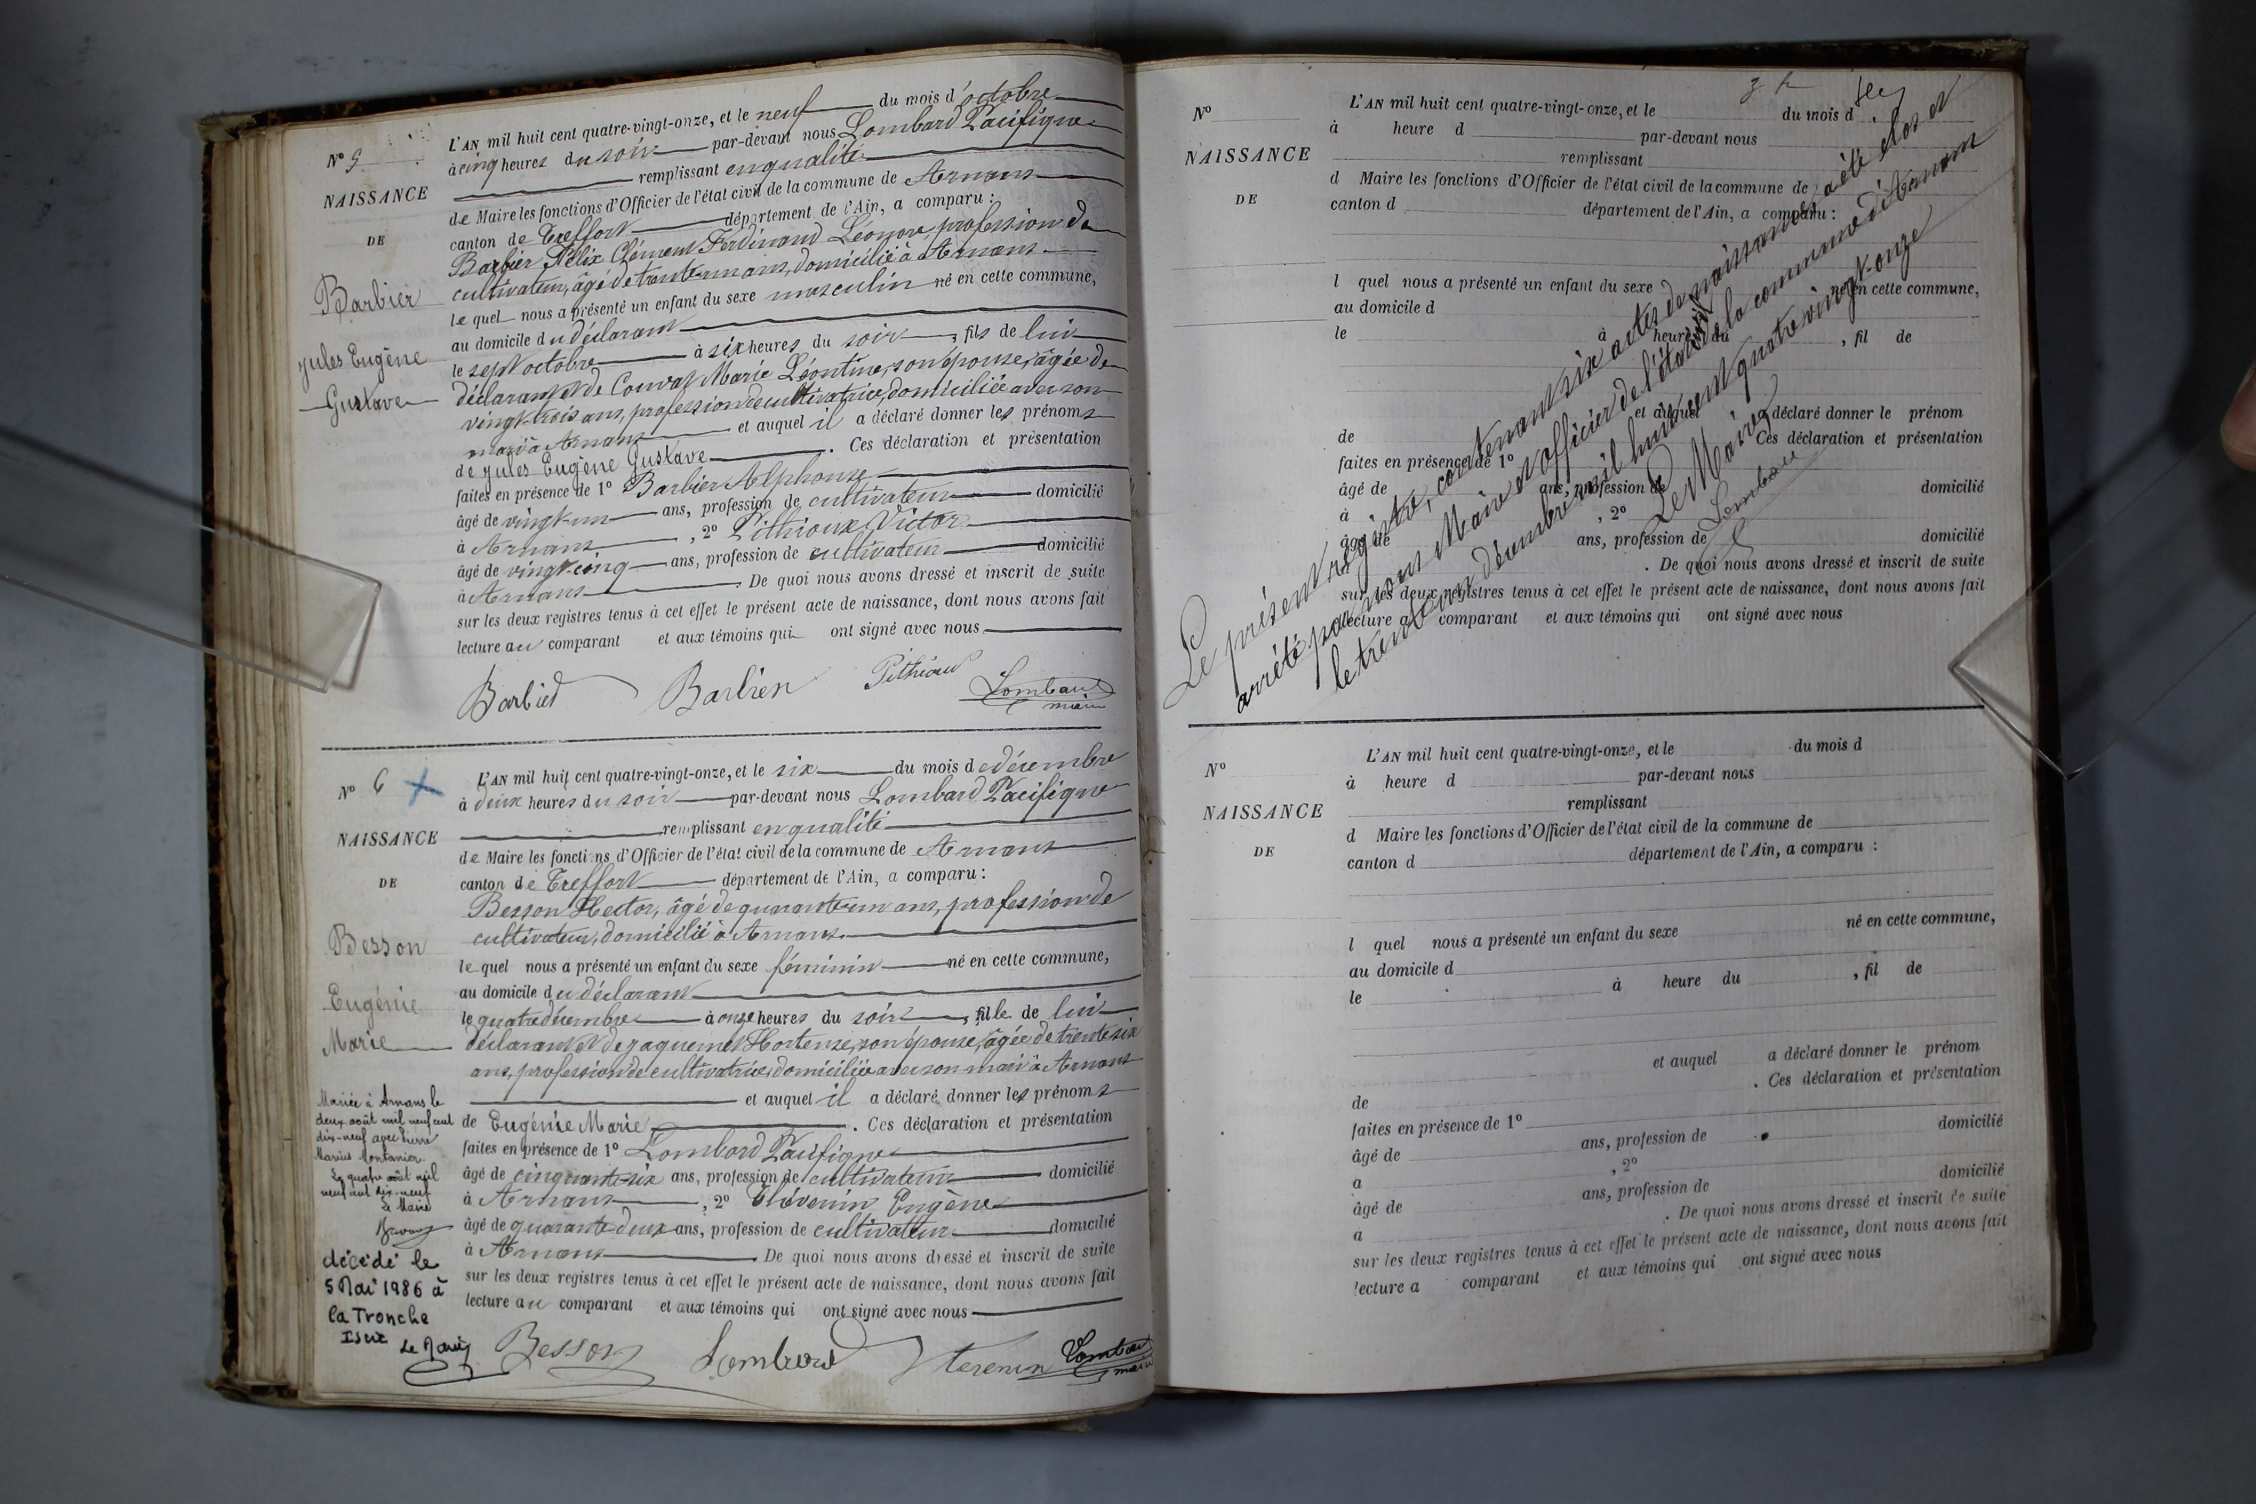 N° 5
NAISSANCE
DE
Barbier
Jules Eugène
Gustave
L'AN mil huit cent quatre-vingt-onze, et le neuf du mois d'octobre
à cinq heures du soir par-devant nous Lombard Pacifique
remplissant en qualité
de Maire les fonctions d'Officier de l'état civil de la commune de Arnans
canton de Treffort département de l'Ain, a comparu :
Barbier Félix Clément Ferdinand Léonore, profession de
cultivateur, âgé de trente-un ans, domicilié à Arnans
lequel nous a présenté un enfant du sexe masculin né en cette commune,
au domicile du déclarant
le sept octobre à six heures du soir, fils de lui
déclarant et de Couvat Marie Léontine, son épouse, âgée de
vingt-trois ans, profession de cultivatrice, domiciliée avec son
mari à Arnans et auquel il a déclaré donner les prénoms
de Jules Eugène Gustave. Ces déclaration et présentation
faites en présence de 1° Barbier Alphonse
âgé de vingt-un ans, profession de cultivateur domicilié
à Arnans, 2° Pithioux Victor
âgé de vingt-cinq ans, profession de cultivateur domicilié
à Arnans. De quoi nous avons dressé et inscrit de suite
sur les deux registres tenus à cet effet le présent acte de naissance, dont nous avons fait
lecture au comparant et aux témoins qui ont signé avec nous
Barbier Barbier Pithioux Lombard
maire
N° 6
NAISSANCE
DE
Besson
Eugénie
Marie
Mariée à Arnans le
deux août mil neuf cent
dix-neuf avec Pierre
Marius Montanier
Le quatre août mil
neuf cent dix-neuf
Le Maire
décédé le
5 Mai 1986 à
la Tronche
Isère
Le Maire
L'AN mil huit cent quatre-vingt-onze, et le six du mois de décembre
à deux heures du soir par-devant nous Lombard Pacifique
remplissant en qualité
de Maire les fonctions d'Officier de l'état civil de la commune de Arnans
canton de Treffort département de l'Ain, a comparu :
Besson Hector, âgé de quarante-un ans, profession de
cultivateur, domicilié à Arnans.
lequel nous a présenté un enfant du sexe féminin né en cette commune,
au domicile du déclarant
le quatre décembre à onze heures du soir, fille de lui
déclarant et de Jaquemet Hortense, son épouse, âgée de trente six
ans, profession de cultivatrice, domiciliée avec son mari à Arnans
et auquel il a déclaré donner les prénoms
de Eugénie Marie. Ces déclaration et présentation
faites en présence de 1° Lombard Pacifique
âgé de cinquante-six ans, profession de cultivateur domicilié
à Arnans, 2° Thévenin Eugène
âgé de quarante-deux ans, profession de cultivateur domicilié
à Arnans. De quoi nous avons dressé et inscrit de suite
sur les deux registres tenus à cet effet le présent acte de naissance, dont nous avons fait
lecture au comparant et aux témoins qui ont signé avec nous
Besson Lombard Tevenin Lombard
maire
N°
NAISSANCE
DE
L'AN mil huit cent quatre-vingt-onze, et le du mois d
à heure d par-devant nous
remplissant
d Maire les fonctions d'Officier de l'état civil de la commune de
canton d département de l'Ain, a comparu :
l quel nous a présenté un enfant du sexe né en cette commune,
au domicile d
le à heure du , fil de
et auquel a déclaré donner le prénom
de . Ces déclaration et présentation
faites en présence de 1°
âgé de ans, profession de domicilié
à , 2°
âgé de ans, profession de domicilié
à . De quoi nous avons dressé et inscrit de suite
sur les deux registres tenus à cet effet le présent acte de naissance, dont nous avons fait
lecture a comparant et aux témoins qui ont signé avec nous
Le présent registre, contenant six actes de naissances, a été clos et
arrêté par nous Maire et officier de l'état civil de la commune d'Arnans
le trente un décembre mil huit cent quatre vingt-onze
Le Maire,
Lombard
N°
NAISSANCE
DE
L'AN mil huit cent quatre-vingt-onze, et le du mois d
à heure d par-devant nous
remplissant
d Maire les fonctions d'Officier de l'état civil de la commune de
canton d département de l'Ain, a comparu :
l quel nous a présenté un enfant du sexe né en cette commune,
au domicile d
le à heure du , fil de
et auquel a déclaré donner le prénom
de . Ces déclaration et présentation
faites en présence de 1°
âgé de ans, profession de domicilié
a , 2°
âgé de ans, profession de domicilié
a . De quoi nous avons dressé et inscrit de suite
sur les deux registres tenus à cet effet le présent acte de naissance, dont nous avons fait
lecture a comparant et aux témoins qui ont signé avec nous